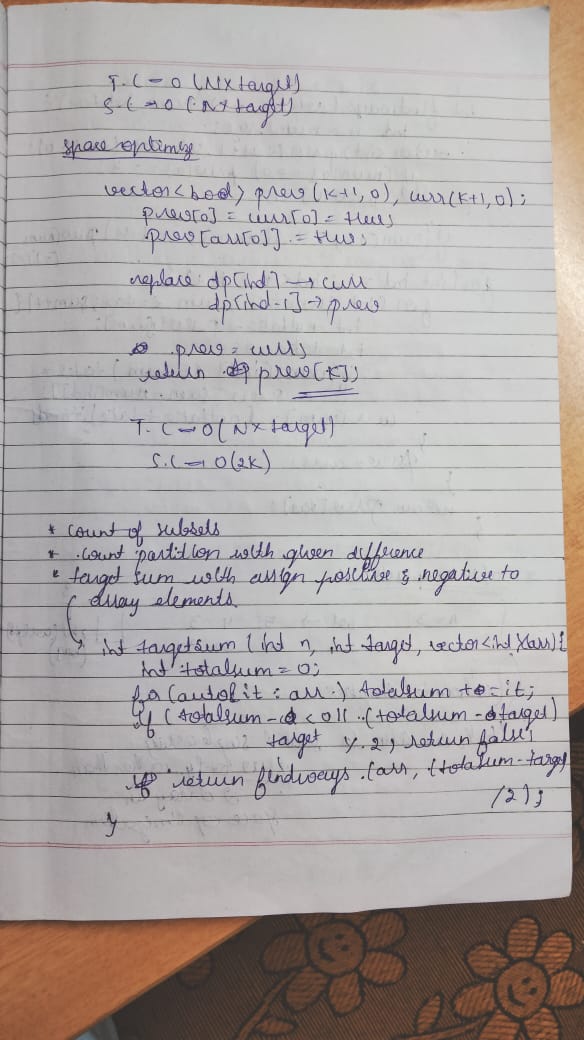 T.C → O (N x target)
S.C → O (N x target)
space optimize
vector<bool> prev (K+1, 0), curr (K+1, 0);
prev[0] = curr[0] = true;
prev [arr[0]] = true;
replace dp[ind] → curr
dp[ind-1] → prev
prev = curr;
return prev[K];
T.C → O( N x target)
S.C → O(2K)
* count of subsets
* count partition with given difference
* target sum with assign positive & negative to
array elements.
→ int targetsum (int n, int target, vector<int>&arr) {
int totalsum = 0;
for (auto &it : arr) totalsum += it;
if (totalsum - < 0 || (totalsum - target)
target % 2) return false;
return findways (arr, (totalsum - target
/2);
}